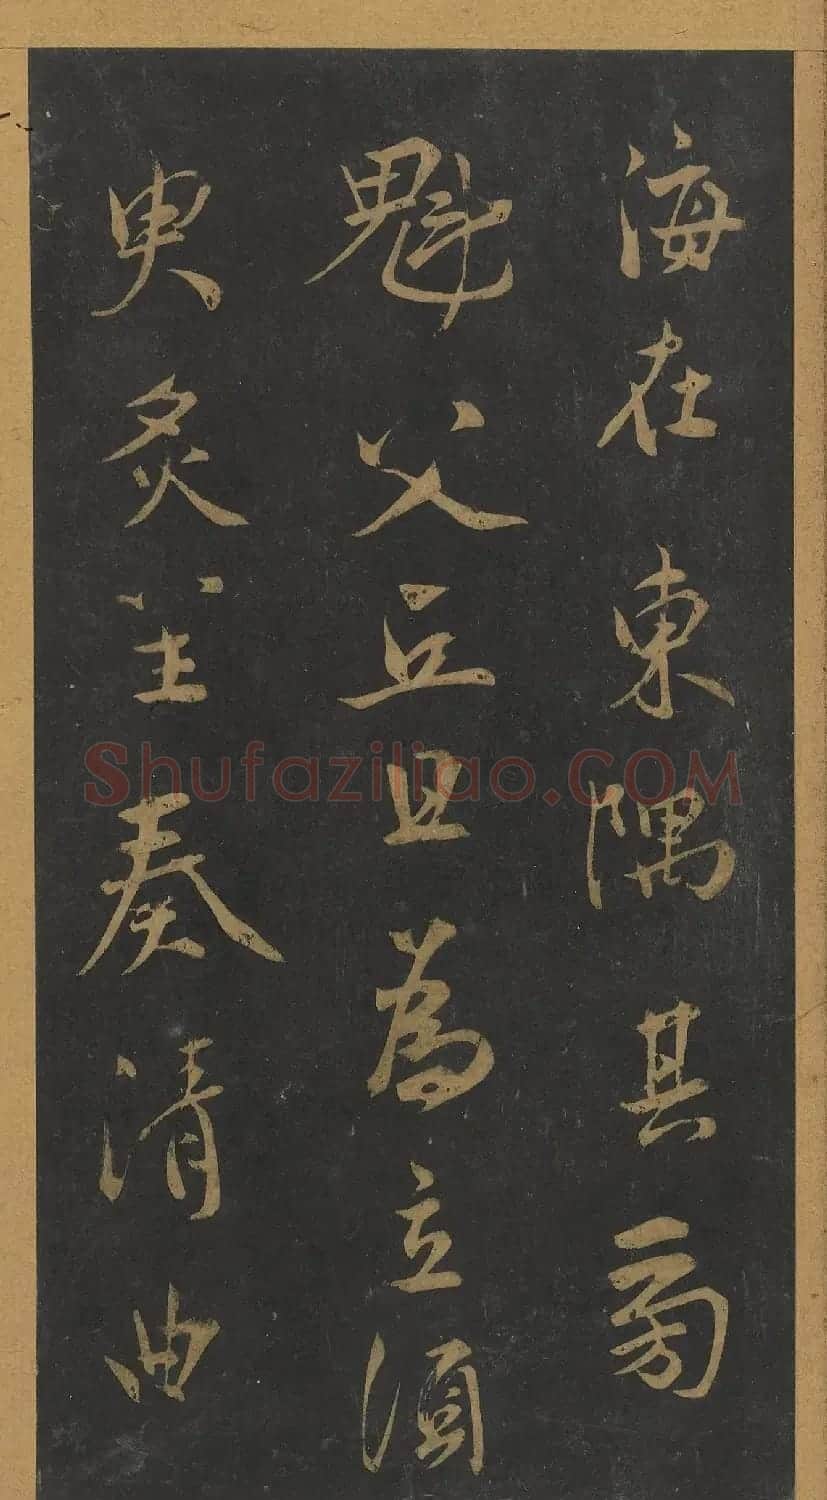 海在東隅其旁
魁父丘且為立須
臾炙笙奏清曲
Shufaziliao.COM